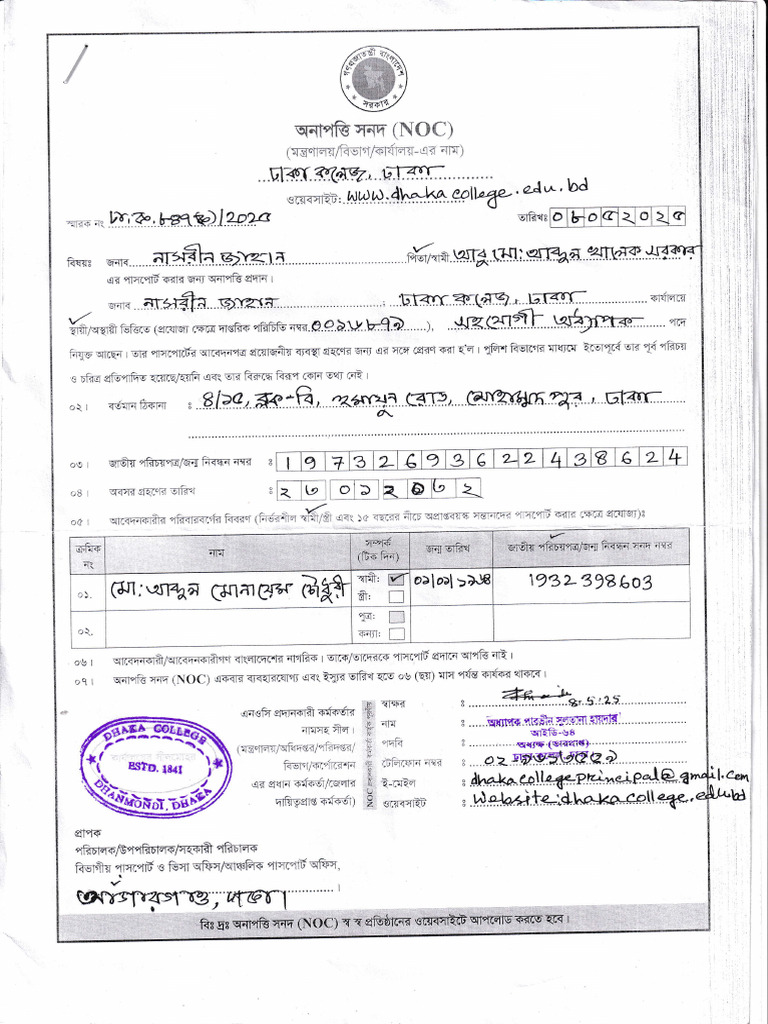 গণপ্রজাতন্ত্রী বাংলাদেশ
সরকার
অনাপত্তি সনদ (NOC)
(মন্ত্রণালয়/বিভাগ/কার্যালয়-এর নাম)
ঢাকা কলেজ, ঢাকা
ওয়েবসাইট: www.dhakacollege.edu.bd
স্মারক নং /২০২৫ তারিখঃ ০৮০৫২০২৫
বিষয়ঃ জনাব নাসরীন জাহান পিতা/স্বামী আবু মো: আব্দুল খালেক সরকার
এর পাসপোর্ট করার জন্য অনাপত্তি প্রদান।
জনাব নাসরীন জাহান : ঢাকা কলেজ, ঢাকা কার্যালয়ে
স্থায়ী/অস্থায়ী ভিত্তিতে (প্রযোজ্য ক্ষেত্রে দাপ্তরিক পরিচিতি নম্বর ), সহযোগী অধ্যাপক পদে
নিযুক্ত আছেন। তার পাসপোর্টের আবেদনপত্র প্রয়োজনীয় ব্যবস্থা গ্রহণের জন্য এর সঙ্গে প্রেরণ করা হ'ল। পুলিশ বিভাগের মাধ্যমে ইতোপূর্বে তার পূর্ব পরিচয়
ও চরিত্র প্রতিপাদিত হয়েছে/হয়নি এবং তার বিরুদ্ধে বিরূপ কোন তথ্য নেই।
০২। বর্তমান ঠিকানা : ৪/১৫, ব্লক-বি, হুমায়ুন রোড, মোহাম্মদপুর, ঢাকা
০৩। জাতীয় পরিচয়পত্র/জন্ম নিবন্ধন নম্বর ঃ 19732693622438624
০৪। অবসর গ্রহণের তারিখ ঃ
০৫। আবেদনকারীর পরিবারবর্গের বিবরণ (নির্ভরশীল স্বামী/স্ত্রী এবং ১৫ বছরের নীচে অপ্রাপ্তবয়স্ক সন্তানদের পাসপোর্ট করার ক্ষেত্রে প্রযোজ্য)ঃ
ক্রমিক নং নাম সম্পর্ক (টিক দিন) জন্ম তারিখ জাতীয় পরিচয়পত্র/জন্ম নিবন্ধন সনদ নম্বর
০১. মো: আব্দুল মোনায়েম চৌধুরী স্বামী: ✓ 1932398603
স্ত্রী:
০২. পুত্র:
কন্যা:
০৬। আবেদনকারী/আবেদনকারীগণ বাংলাদেশের নাগরিক। তাকে/তাদেরকে পাসপোর্ট প্রদানে আপত্তি নাই।
০৭। অনাপত্তি সনদ (NOC) একবার ব্যবহারযোগ্য এবং ইস্যুর তারিখ হতে ০৬ (ছয়) মাস পর্যন্ত কার্যকর থাকবে।
এনওসি প্রদানকারী কর্মকর্তার
নামসহ সীল।
(মন্ত্রণালয়/অধিদপ্তর/পরিদপ্তর/
বিভাগ/কর্পোরেশন
এর প্রধান কর্মকর্তা/জেলার
দায়িত্বপ্রাপ্ত কর্মকর্তা)
স্বাক্ষর : 8.5.25
নাম : অধ্যাপক পারভীন সুলতানা হায়দার
আইডি-৬৪
পদবি : অধ্যক্ষ (ভারপ্রাপ্ত)
টেলিফোন নম্বর :
ই-মেইল : dhakacollegeprincipal@gmail.com
ওয়েবসাইট : website:dhakacollege.edu.bd
DHAKA COLLEGE
ESTD. 1841
DHANMONDI, DHAKA
প্রাপক
পরিচালক/উপপরিচালক/সহকারী পরিচালক
বিভাগীয় পাসপোর্ট ও ভিসা অফিস/আঞ্চলিক পাসপোর্ট অফিস,
আগারগাঁও, ঢাকা।
বিঃ দ্রঃ অনাপত্তি সনদ (NOC) স্ব স্ব প্রতিষ্ঠানের ওয়েবসাইটে আপলোড করতে হবে।